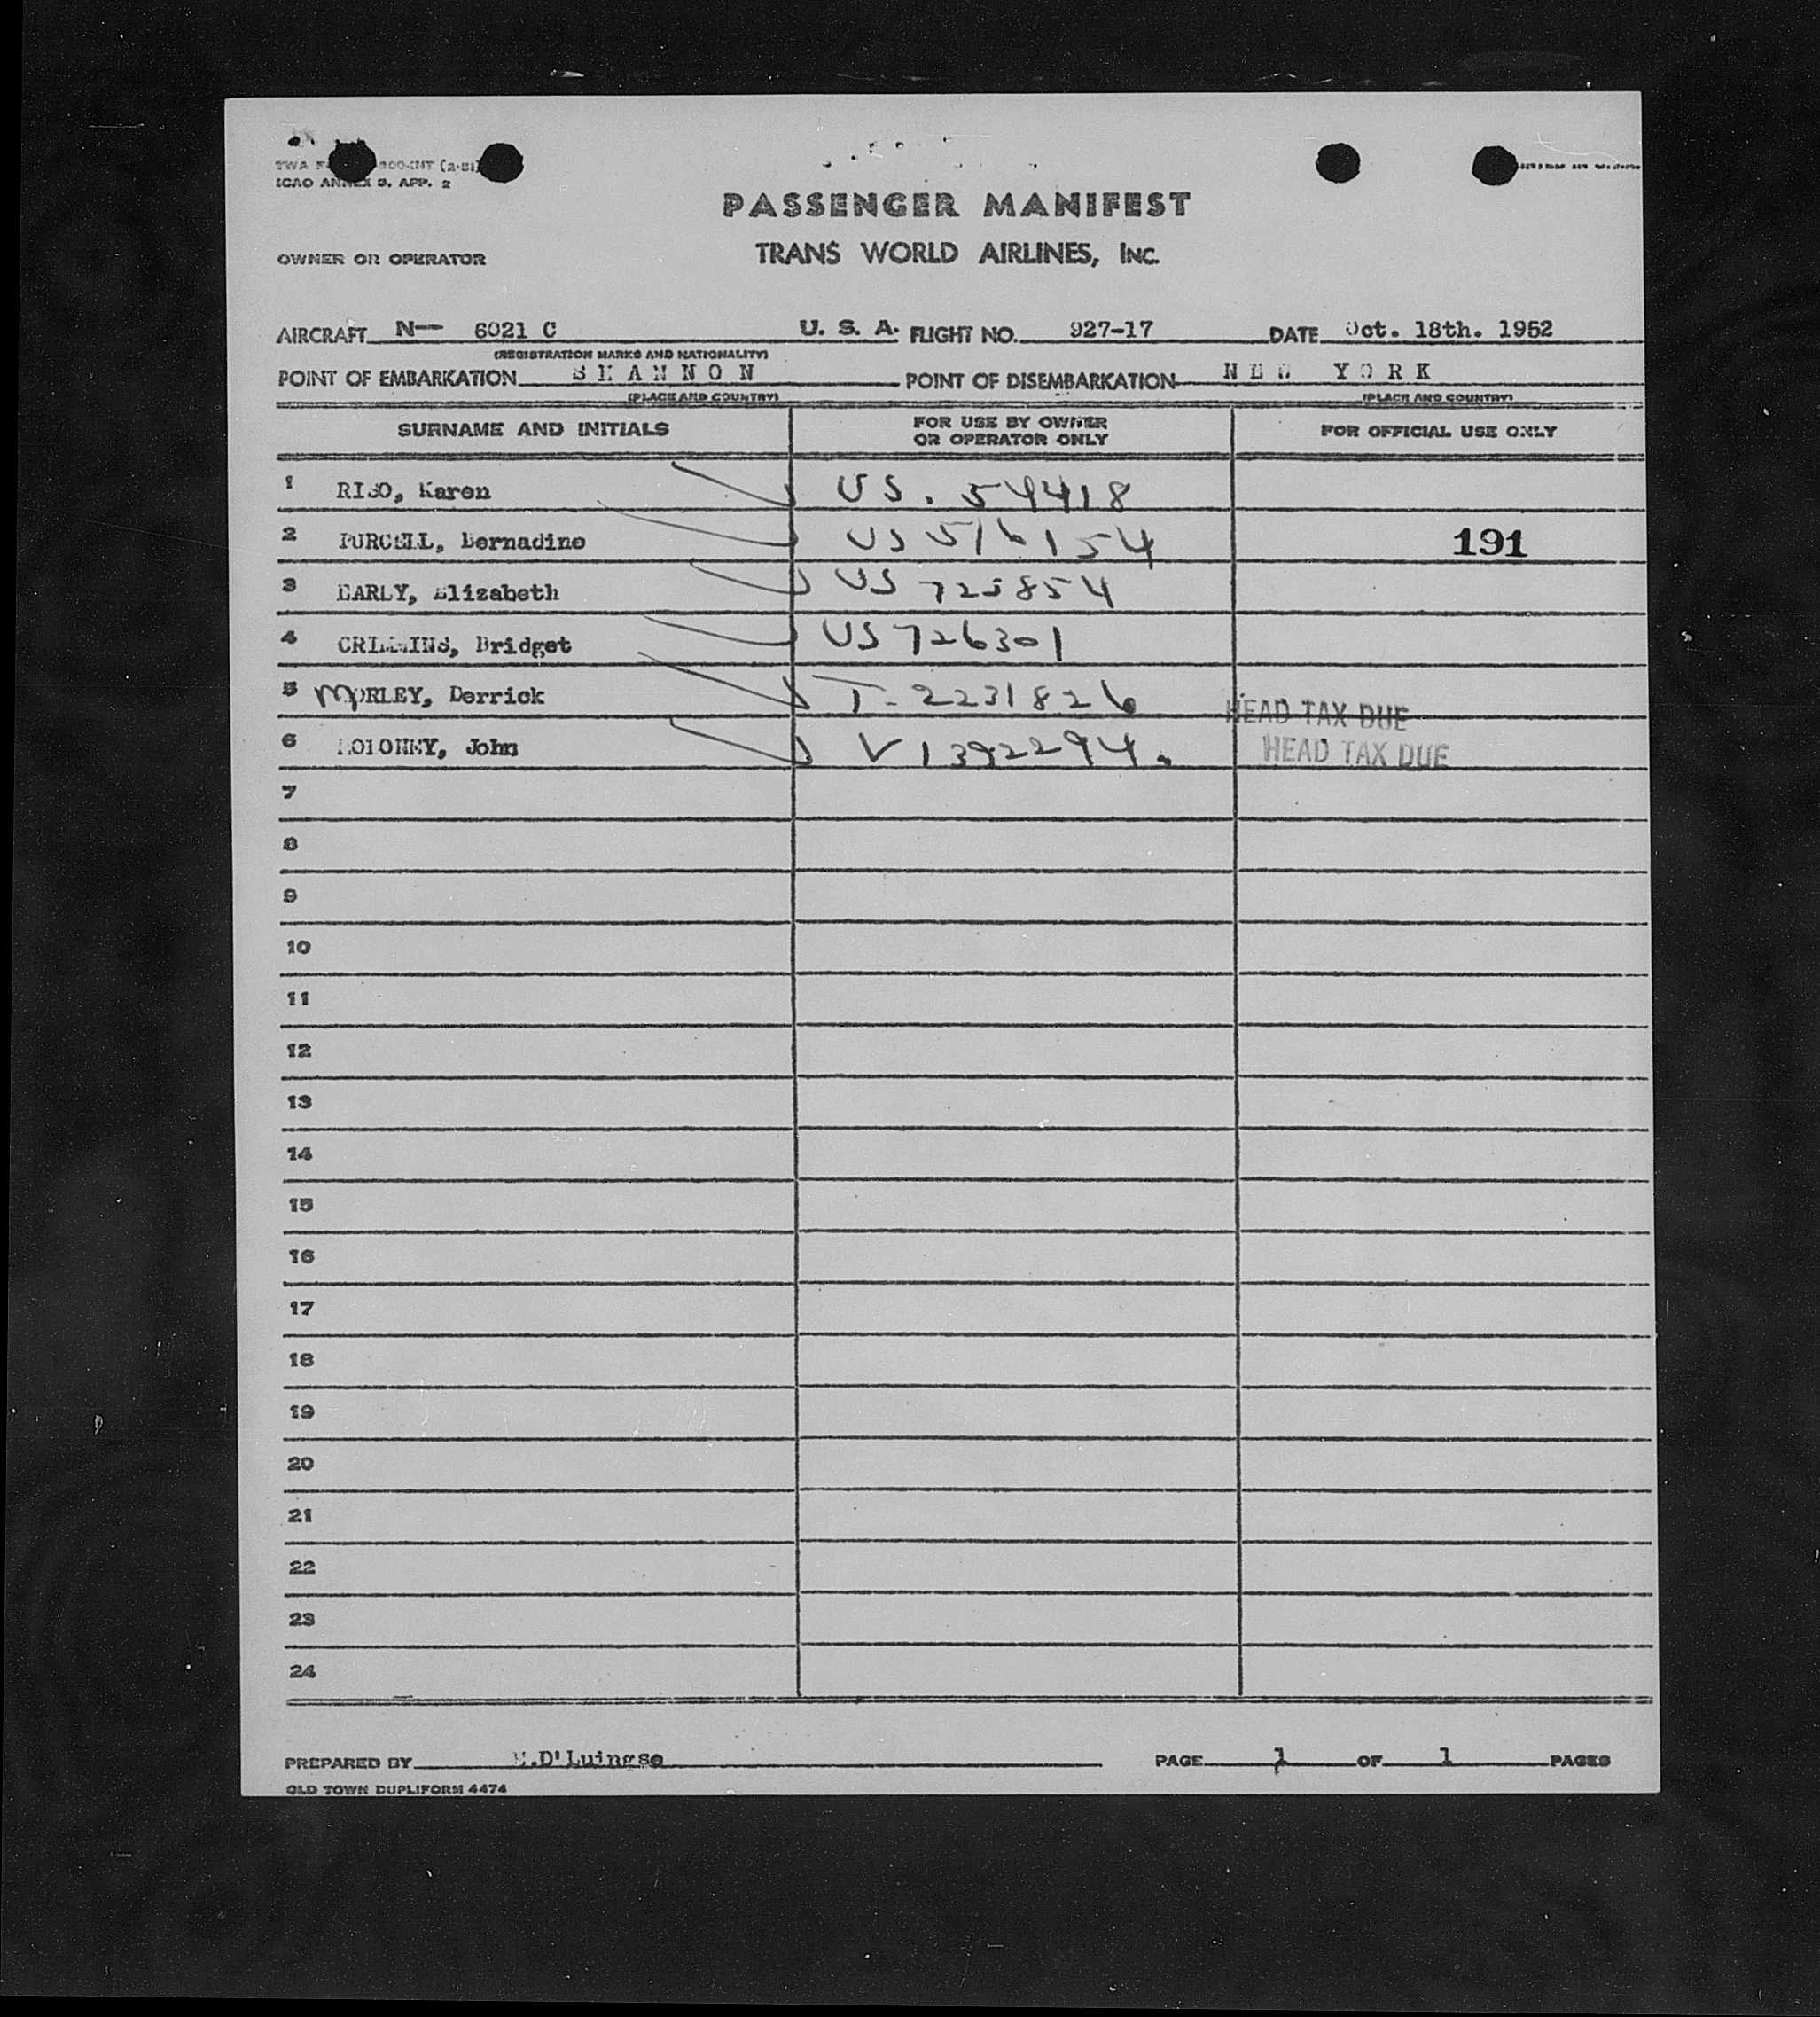 ICAO ANNEX 9, APP. 2
PASSENGER MANIFEST
OWNER OR OPERATOR
TRANS WORLD AIRLINES, INC.
AIRCRAFT N— 6021 C U. S. A. FLIGHT NO. 927-17 DATE Oct. 18th. 1952
(REGISTRATION MARKS AND NATIONALITY)
POINT OF EMBARKATION S H A N N O N POINT OF DISEMBARKATION N E W Y O R K
(PLACE AND COUNTRY) (PLACE AND COUNTRY)
SURNAME AND INITIALS FOR USE BY OWNER OR OPERATOR ONLY FOR OFFICIAL USE ONLY
1 Karen US. 54418
2 PURCELL, Bernadine US 516154 191
3 EARLY, Elizabeth US 725854
4 CRIMMINS, Bridget US 726301
5 MORLEY, Derrick T- 2231826 HEAD TAX DUE
6 John V 1392294. HEAD TAX DUE
7
8
9
10
11
12
13
14
15
16
17
18
19
20
21
22
23
24
PREPARED BY D'Luingse PAGE 1 OF 1 PAGES
OLD TOWN DUPLIFORM 4474